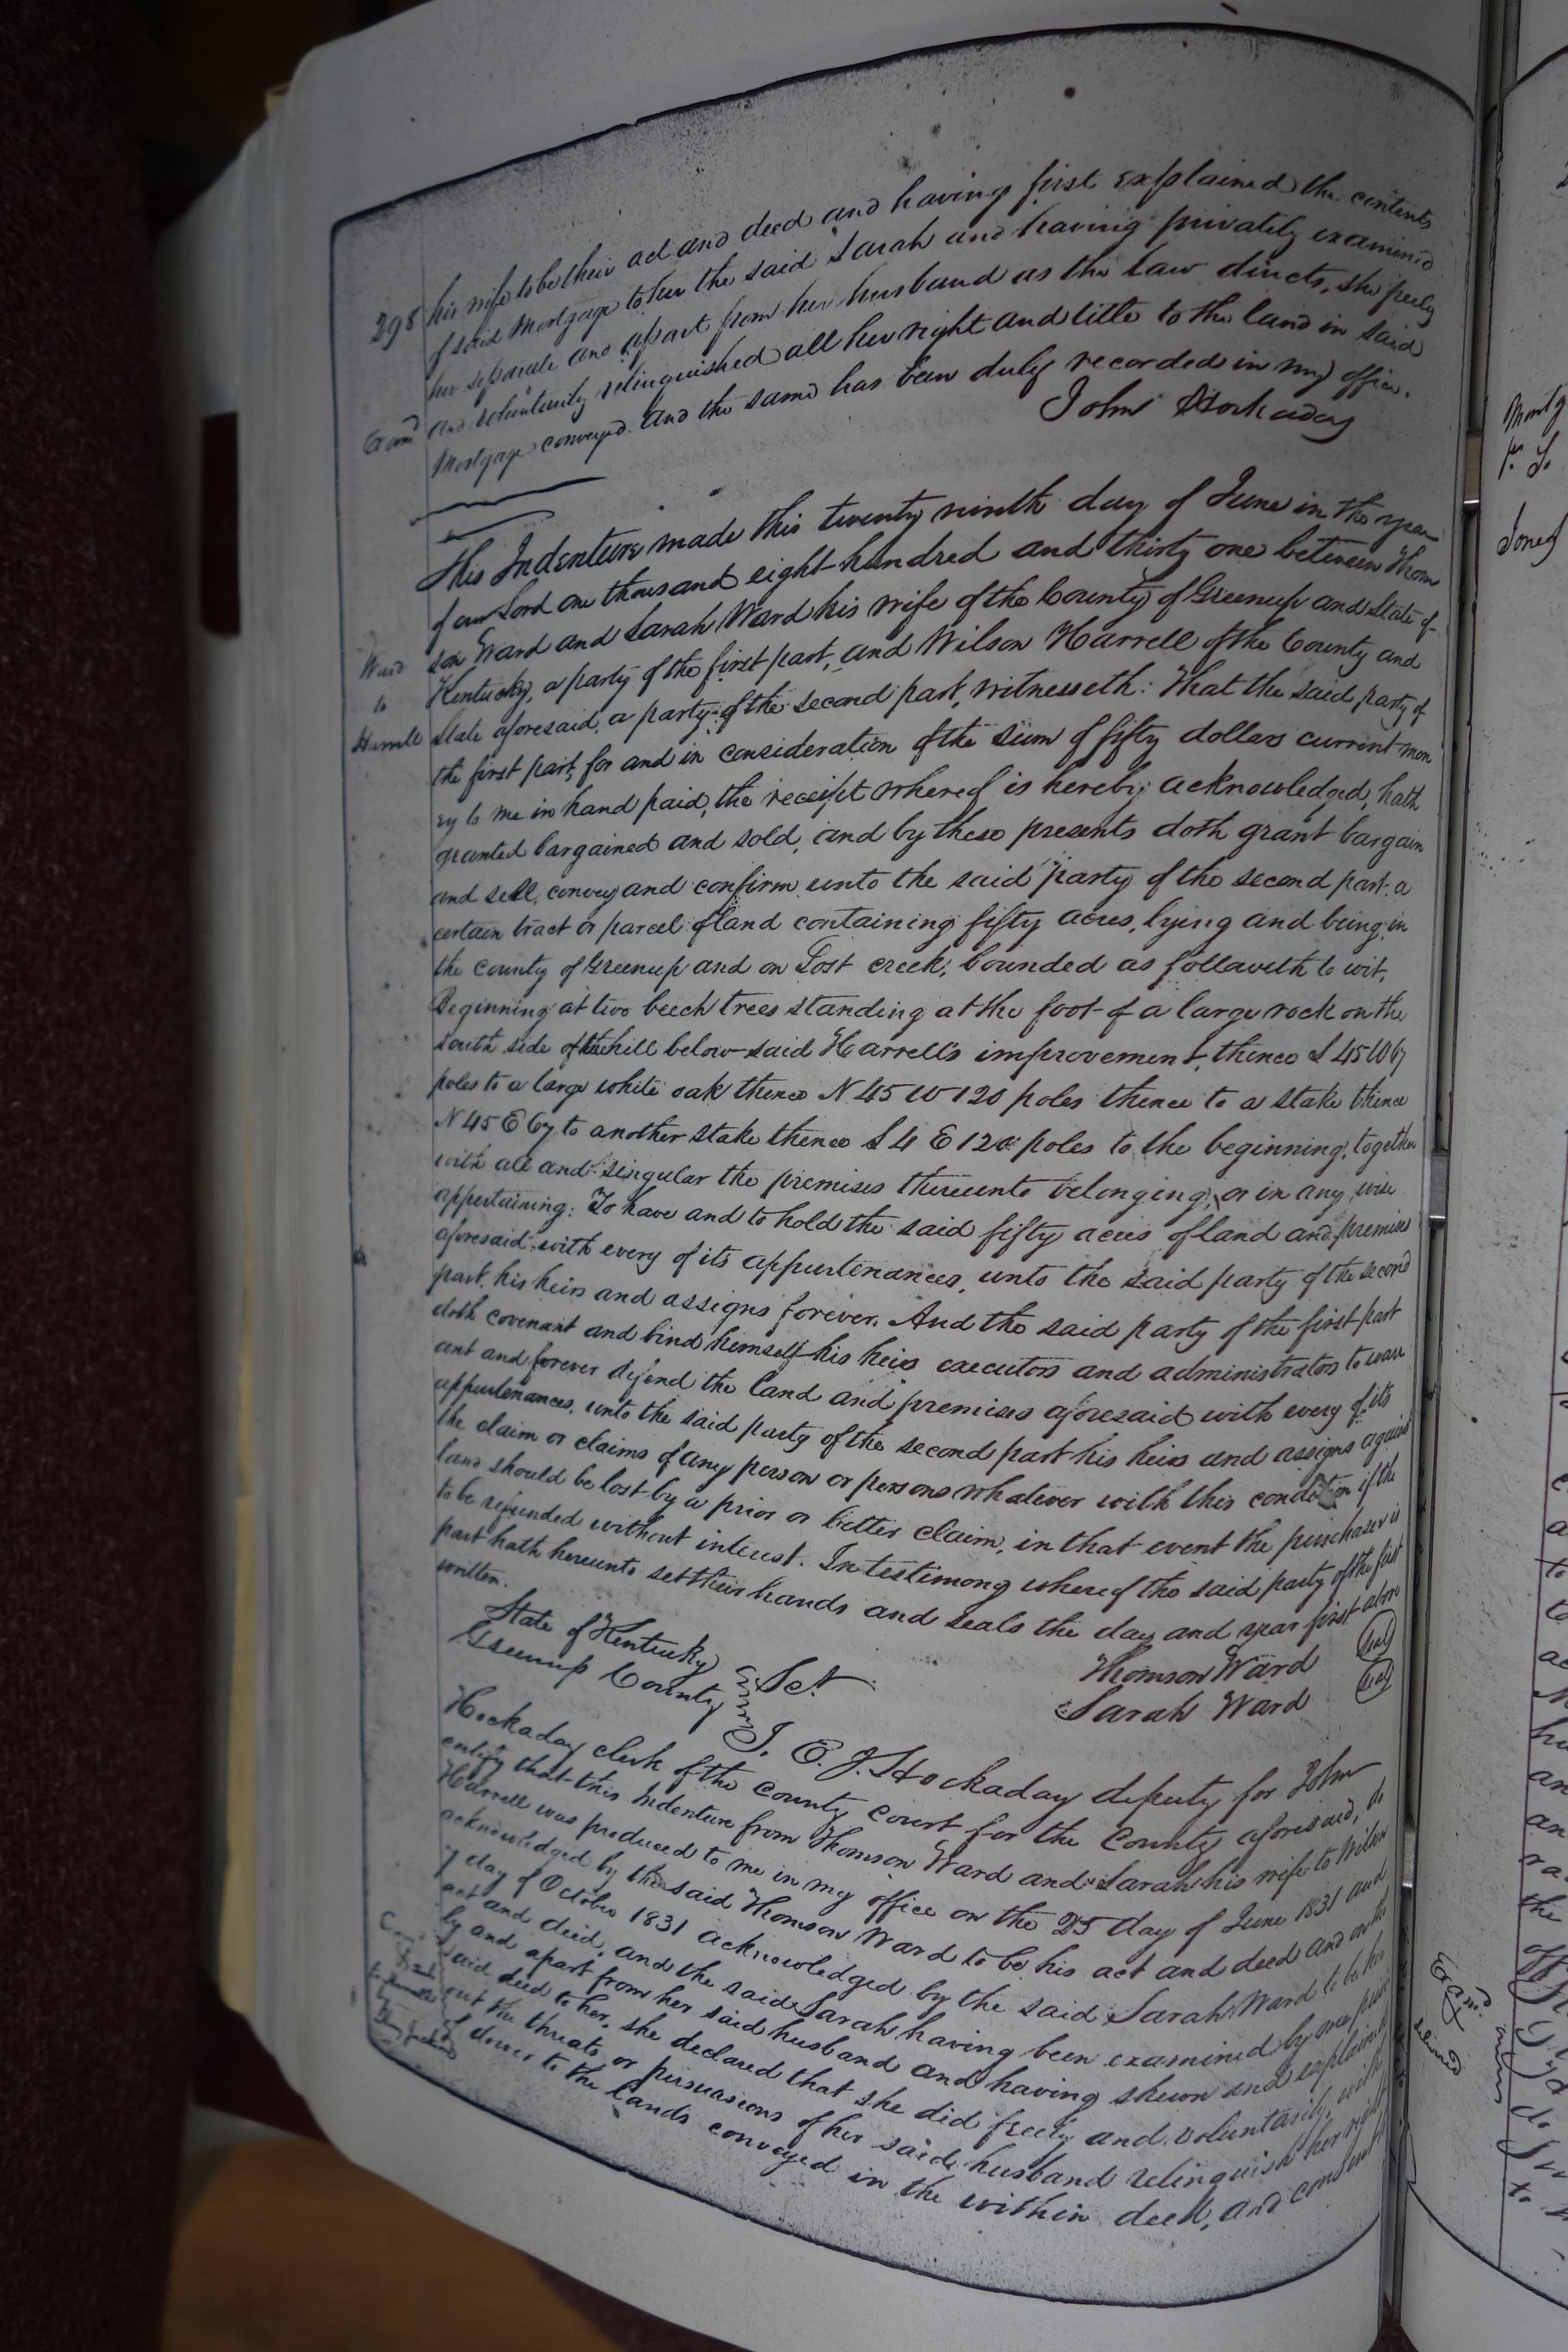 298
his wife to be their act and deed and having first explained the contents
of said Mortgage to her the said Sarah and having privately examined
her separate and apart from her husband as the law directs, she freely
and voluntarily relinquished all her right and title to the land in said
Mortgage conveyed. And the same has been duly recorded in my office.
Examd
John Hockaday
This Indenture made this twenty ninth day of June in the year
of our Lord one thousand eight hundred and thirty one between Thom
son Ward and Sarah Ward his wife of the County of Greenup and State of
Ward
to
Harrell
Kentucky, a party of the first part, and Wilson Harrell of the County and
State aforesaid, a party of the second part, witnesseth: That the said party of
the first part, for and in consideration of the sum of fifty dollars current mon
ey to me in hand paid, the receipt whereof is hereby acknowledged, hath
granted bargained and sold, and by these presents doth grant bargain
and sell, convey and confirm unto the said party of the second part, a
certain tract or parcel of land containing fifty acres, lying and being in
the County of Greenup and on Lost creek, bounded as followeth to wit,
Beginning at two beech trees standing at the foot of a large rock on the
south side of the hill below said Harrell's improvement, thence S 45 W 67
poles to a large white oak thence N 45 W 120 poles thence to a stake thence
N 45 E 67 to another stake thence S 4 E 120 poles to the beginning, together
with all and singular the premises thereunto belonging, or in any wise
appertaining: To have and to hold the said fifty acres of land and premises
aforesaid with every of its appurtenances, unto the said party of the second
part, his heirs and assigns forever. And the said party of the first part
doth covenant and bind himself his heirs executors and administrators to warr
ant and forever defend the land and premises aforesaid with every of its
appurtenances, unto the said party of the second part his heirs and assigns against
the claim or claims of any person or persons whatever with this condition if the
land should be lost by a prior or better claim, in that event the purchaser is
to be refunded without interest. In testimony whereof the said party of the first
part hath hereunto set their hands and seals the day and year first above
written.
Thomson Ward (Seal)
Sarah Ward (Seal)
State of Kentucky
Greenup County Sct.
I, E. J. Hockaday deputy for John
Hockaday clerk of the county court for the County aforesaid, do
certify that this Indenture from Thomson Ward and Sarah his wife to Wilson
Harrell was produced to me in my office on the 25 day of June 1831 and
acknowledged by the said Thomson Ward to be his act and deed and on the
7 day of October 1831 acknowledged by the said Sarah Ward to be her
act and deed, and the said Sarah having been examined by me priv
ly and apart from her said husband and having shewn and explained
said deed to her, she declared that she did freely and voluntarily, with
out the threats or persuasions of her said husband relinquish her right
of dower to the lands conveyed in the within deed, and consent
Mortg
Jones